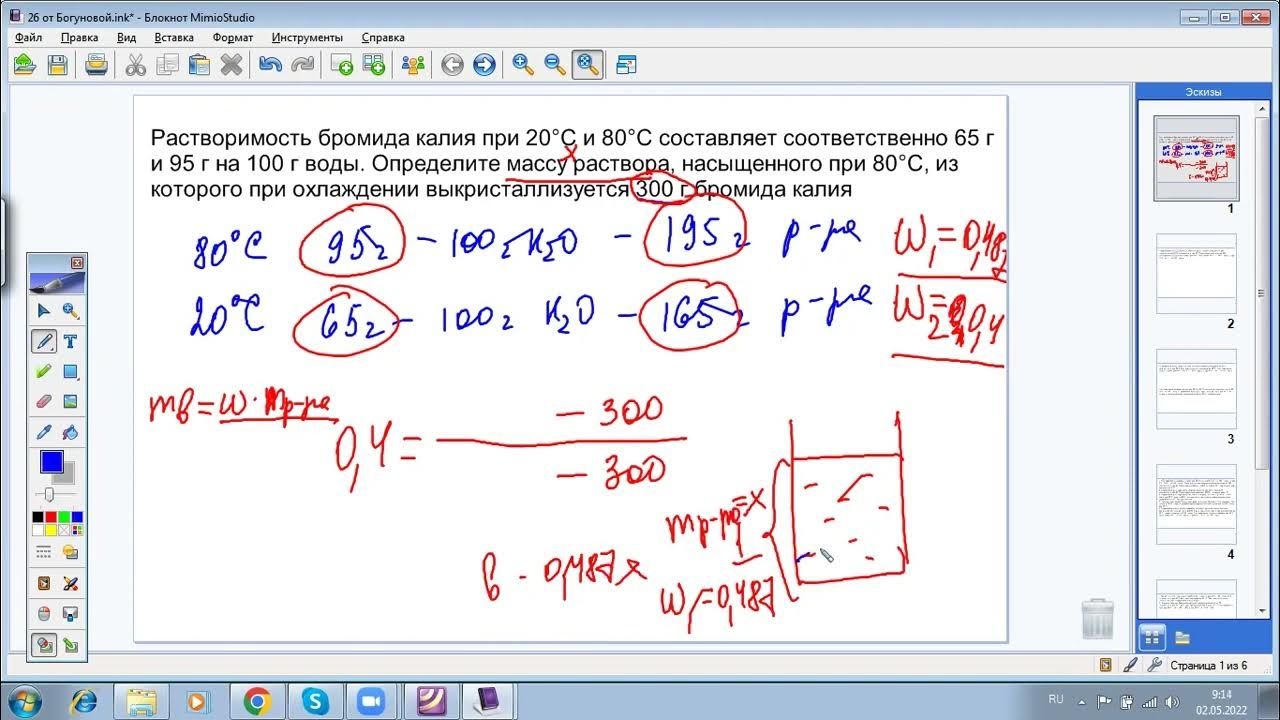 26 от Богуновой.ink* - Блокнот MimioStudio
Файл Правка Вид Вставка Формат Инструменты Справка
Эскизы
Растворимость бромида калия при 20°С и 80°С составляет соответственно 65 г
и 95 г на 100 г воды. Определите массу раствора, насыщенного при 80°С, из
x
которого при охлаждении выкристаллизуется 300 г бромида калия
80°C 95г - 100г H2O - 195г р-ра W1=0,487
20°C 65г - 100г H2O - 165г р-ра W2=0,4
mв=w·mр-ра
0,4= - 300
- 300
mр-ра=x
в - 0,487x
W1=0,487
1
2
3
4
Страница 1 из 6
RU
9:14
02.05.2022